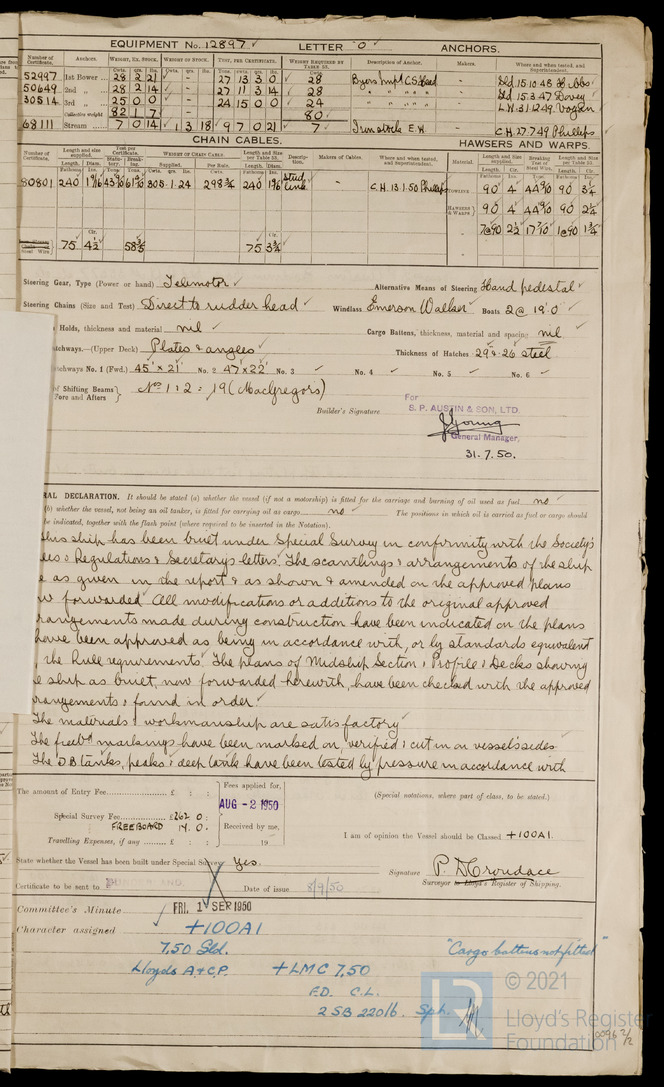 EQUIPMENT No. 12897 ✓ LETTER "O" ANCHORS.
Number of Certificate. Anchors. WEIGHT, EX. STOCK. WEIGHT OF STOCK. TEST, PER CERTIFICATE. WEIGHT REQUIRED BY TABLE 53. Description of Anchor. Makers. Where and when tested, and Superintendent.
Cwts. qrs. lbs. Cwts. qrs. lbs. Tons. cwts. qrs. lbs. Cwts.
52997 1st Bower 28 2 21 - - 27 13 3 0 28 Byers Impt C.S. Head - Sld 15.10.48 Hibbs
50649 2nd „ 28 2 14 27 11 3 14 28 " " " - Sld 15.3.47 Dovey
30514 3rd „ 25 0 0 24 15 0 0 24 " " " - L.H. 31.12.49
Collective weight 82 1 7 80
68111 Stream 7 0 14 1 3 18 9 7 0 21 7 Iron Stock E.H. - C.H. 27.7.49 Phillips
CHAIN CABLES. HAWSERS AND WARPS.
Number of Certificate. Length and size supplied. Test per Certificate. WEIGHT OF CHAIN CABLE. Length and size per Table 53. Description. Makers of Cables. Where and when tested, and Superintendent. Material. Length and Size supplied. Breaking Test of Steel Wire. Length and Size per Table 53.
80801 240 1 9/16 305.1.24 298¾ 240 1 9/16 Stud Link - C.H. 13.1.50 Phillips TOWLINE 90 4 90 3¼
HAWSERS & WARPS 90 4 90 2¼
2½ 1¾
75 4½ 75 3¾
Steering Gear, Type (Power or hand) Telemotor ✓ Alternative Means of Steering Hand pedestal ✓
Steering Chains (Size and Test) Direct to rudder head ✓ Windlass Emerson Walker ✓ Boats 2 @ 19'.0" ✓
Holds, thickness and material nil ✓ Cargo Battens, thickness, material and spacing nil ✓
tchways.—(Upper Deck) Plates & angles ✓ Thickness of Hatches .29 & .26 steel ✓
tchways No. 1 (Fwd.) 45' × 21' No. 2 47' × 22' No. 3 ✓ No. 4 ✓ No. 5 ✓ No. 6 ✓
of Shifting Beams
Fore and Afters } Nos 1 & 2 = 19 (MacGregors)
Builder's Signature
For
S. P. AUSTIN & SON, LTD.
J. Young
General Manager.
31.7.50.
RAL DECLARATION. It should be stated (a) whether the vessel (if not a motorship) is fitted for the carriage and burning of oil used as fuel no ✓
(b) whether the vessel, not being an oil tanker, is fitted for carrying oil as cargo no ✓ The positions in which oil is carried as fuel or cargo should
be indicated, together with the flash point (where required to be inserted in the Notation).
This ship has been built under Special Survey in conformity with the Society's
les & Regulations & Secretary's letters. The scantlings & arrangements of the ship
e as given in the report & as shown & amended on the approved plans
w forwarded. All modifications or additions to the original approved
rangements made during construction have been indicated on the plans
have been approved as being in accordance with, or by standards equivalent
, the Rule requirements. The plans of Midship Section & Profile & Decks showing
e ship as built, now forwarded herewith, have been checked with the approved
rangements & found in order.
The materials & workmanship are satisfactory
The freebd markings have been marked on, verified & cut in on vessel's sides
The D.B tanks, peaks & deep tank have been tested by pressure in accordance with
The amount of Entry Fee £ : : Fees applied for,
AUG - 2 1950 (Special notations, where part of class, to be stated.)
Special Survey Fee £262 0 :
FREEBOARD 14. 0 : Received by me,
Travelling Expenses, if any £ : : 19
I am of opinion the Vessel should be Classed +100A1.
State whether the Vessel has been built under Special Survey Yes.
Signature P. D. Croudace
Surveyor to Lloyd's Register of Shipping.
Certificate to be sent to SUNDERLAND. Date of issue 8/9/50
Committee's Minute FRI. 1 SEP 1950
Character assigned +100A1
7.50 Sld. "Cargo battens not fitted"
Lloyds A & C.P. +LMC 7,50
F.D. C.L.
2 SB 220 lb. Sph.
LR
© 2021
Lloyd's Register
Foundation
0096 2/2